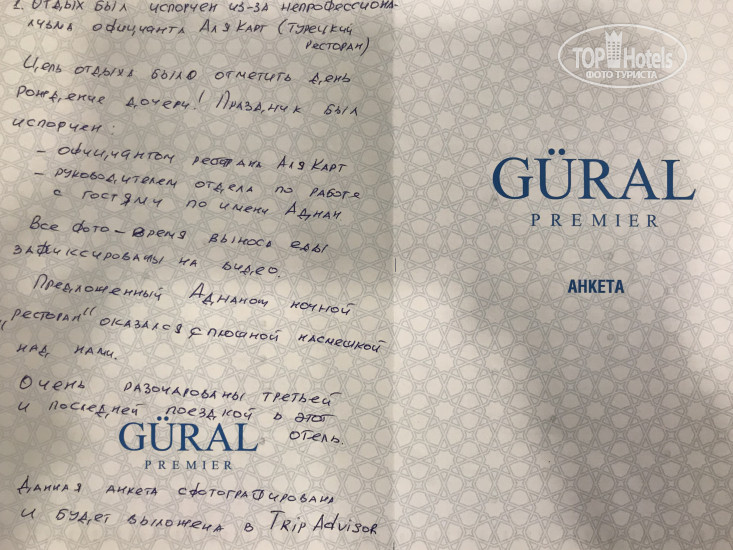 1. Отдых был испорчен из-за непрофессиона-
лизма официанта Аля Карт (турецкий
ресторан)
Цель отдыха было отметить день
рождение дочери! Праздник был
испорчен:
- официантом ресторана Аля Карт
- руководителем отдела по работе
с гостями по имени Аднан
Все фото - время выноса еды
зафиксированы на видео.
Предложенный Аднаном ночной
"ресторан" оказался сплошной насмешкой
над нами.
Очень разочарованы третьей
и последней поездкой в этот
отель.
GÜRAL
PREMIER
Данная анкета сфотографирована
и будет выложена в Trip Advisor
TOP Hotels
ФОТО ТУРИСТА
GÜRAL
PREMIER
АНКЕТА